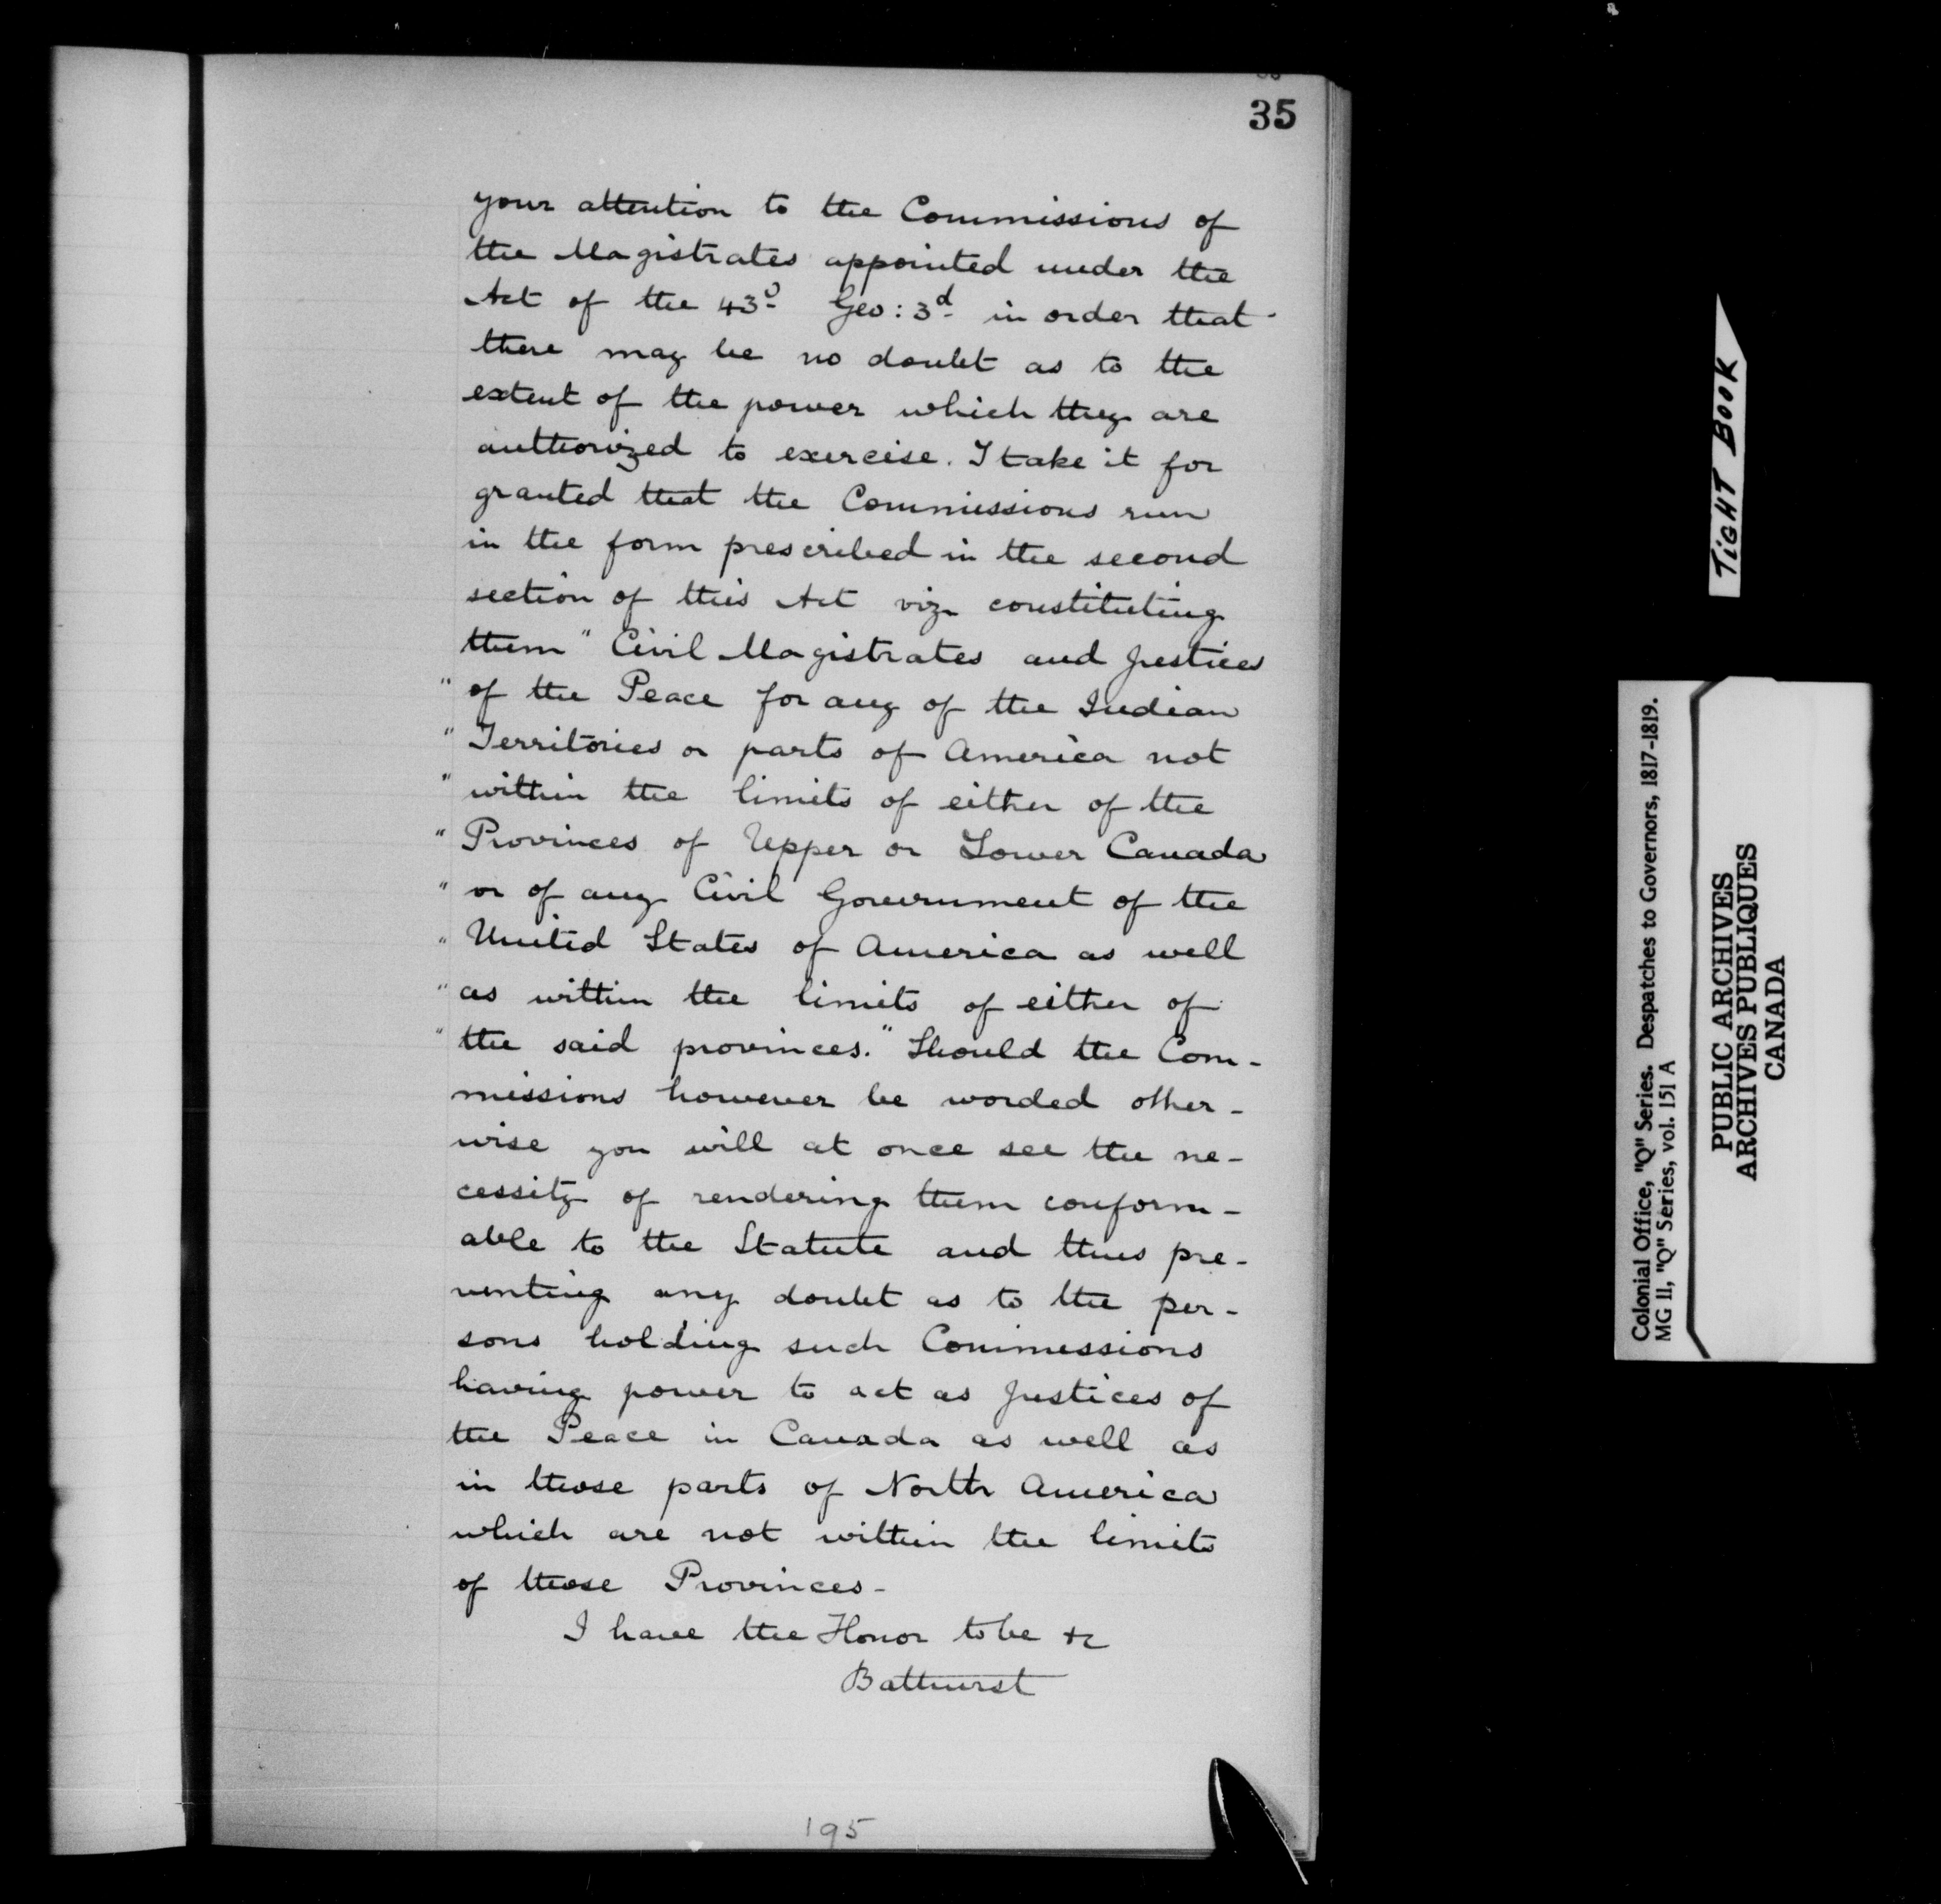 35
your attention to the Commissions of
the Magistrates appointed under the
Act of the 43d Geo: 3d in order that
there may be no doubt as to the
extent of the power which they are
authorized to exercise. I take it for
granted that the Commissions run
in the form prescribed in the second
section of this Act viz constituting
them " Civil Magistrates and Justices
" of the Peace for any of the Indian
" Territories or parts of America not
" within the limits of either of the
" Provinces of Upper or Lower Canada
" or of any Civil Government of the
" United States of America as well
" as within the limits of either of
" the said provinces." Should the Com-
missions however be worded other-
wise you will at once see the ne-
cessity of rendering them conform-
able to the Statute and thus pre-
venting any doubt as to the per-
sons holding such Commissions
having power to act as Justices of
the Peace in Canada as well as
in those parts of North America
which are not within the limits
of those Provinces-
I have the Honor to be &c
Bathurst
195
TIGHT BOOK
Colonial Office, "Q" Series. Despatches to Governors, 1817-1819.
MG 11, "Q" Series, vol. 151 A
PUBLIC ARCHIVES
ARCHIVES PUBLIQUES
CANADA